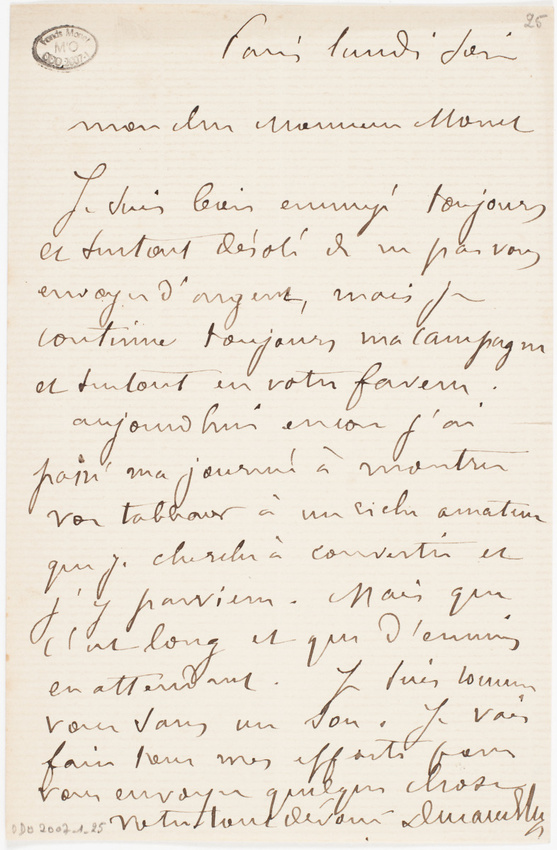 25
Fonds Monet
M'O
ODO 2007-1
Paris lundi soir
mon cher Monsieur Monet
Je suis bien ennuyé toujours
et surtout désolé de ne pas vous
envoyer d'argent, mais je
continue toujours ma campagne
et surtout en votre faveur.
aujourd'hui encore j'ai
passé ma journée à montrer
vos tableaux à un riche amateur
que je cherche à convertir et
j'y parviens. Mais que
c'est long et que d'ennuis
en attendant. Je suis comme
vous sans un sou. Je vais
faire tous mes efforts pour
vous envoyer quelque chose
votre tout dévoué
ODO 2007-1-25